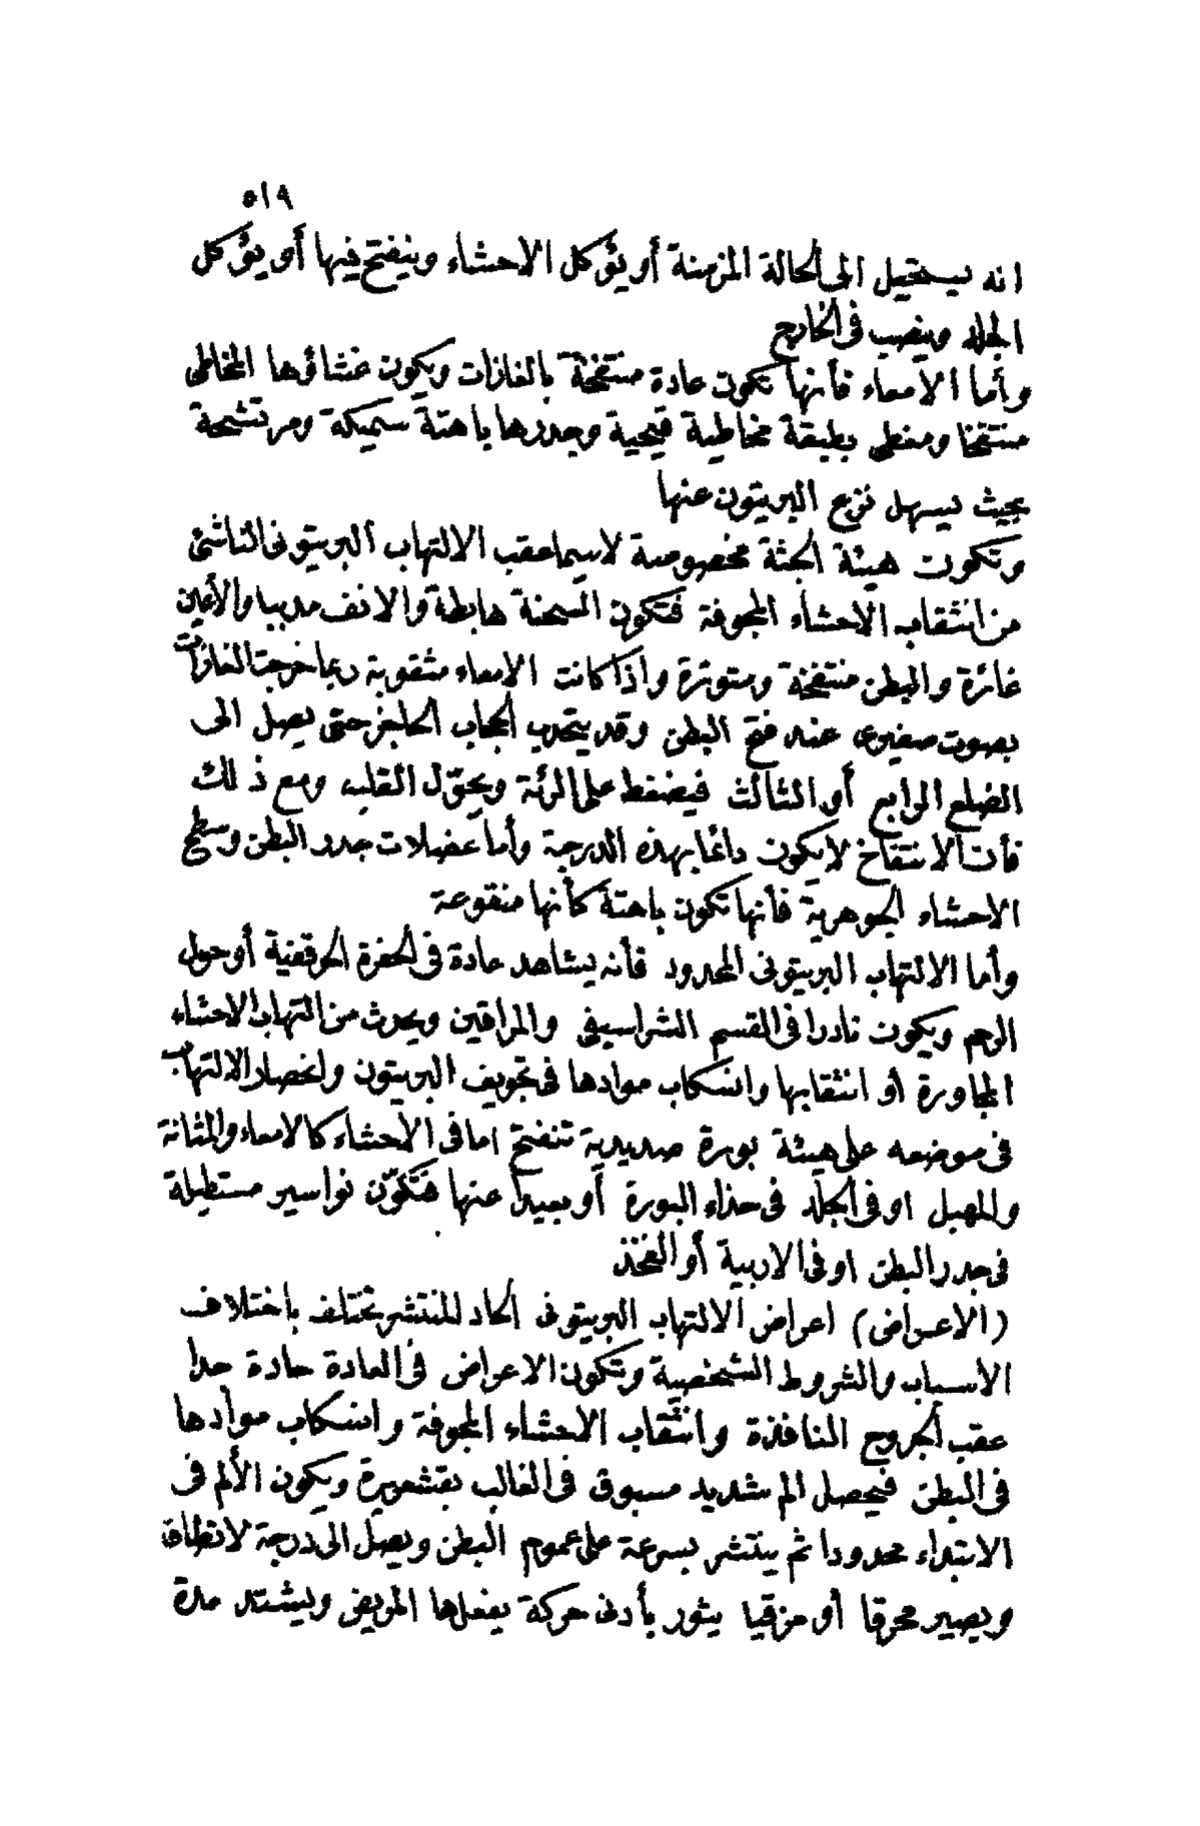 ٥١٩
انه يستحيل الى الحالة المزمنة أو يؤكل الاحشاء وينفتح فيها أو يؤكل
الجلد وينصب فى الخارج
وأما الامعاء فأنها تكون عادة منتفخة بالغازات ويكون غشاؤها المخاطى
منتفخا ومغطى بطبقة مخاطية قيحية وجدرها باهتة سميكة ومرتشحة
بحيث يسهل نزع البريتون عنها
وتكون هيئة الجثة مخصوصة لاسيما عقب الالتهاب البريتونى الناشئ
من انثقاب الاحشاء المجوفة فتكون السحنة هابطة والانف مدببا والأعين
غائرة والبطن منتفخة ومتوترة واذا كانت الامعاء مثقوبة ربما خرجت الغازات
بصوت صفيرى عند فتح البطن وقد يتحدب الحجاب الحاجز حتى يصل الى
الضلع الرابع أو الثالث فيضغط على الرئة ويحوّل القلب ومع ذلك
فأن الانتفاخ لا يكون دائما بهذه الدرجة وأما عضلات جدر البطن وسطح
الاحشاء الجوهرية فأنها تكون باهتة كأنها منقوعة
وأما الالتهاب البريتونى المحدود فأنه يشاهد عادة فى الحفرة الحرقفية أو حول
الرحم ويكون نادرا فى القسم الشراسيفى والمراقين ويحدث من التهاب الاحشاء
المجاورة أو انثقابها وانسكاب موادها فى تجويف البريتون وانحصار الالتهاب
فى موضعه على هيئة بورة صديدية تنفتح اما فى الأحشاء كالامعاء والمثانة
والمهبل او فى الجلد فى حذاء البورة أو بعيدا عنها فتتكوّن نواسير مستطيلة
فى جدر البطن او فى الاربية أو الفخذ
(الاعراض) اعراض الالتهاب البريتونى الحاد المنتشر تختلف باختلاف
الاسباب والشروط الشخصية وتكون الاعراض فى العادة حادة جدا
عقب الجروح النافذة وانثقاب الاحشاء المجوفة وانسكاب موادها
فى البطن فيحصل الم شديد مسبوق فى الغالب بقشعريرة ويكون الألم فى
الابتداء محدودا ثم ينتشر بسرعة على عموم البطن ويصل الى درجة لا تطاق
ويصير محرقا أو مزقيا يثور بأدنى حركة يفعلها المريض ويشتد مدة